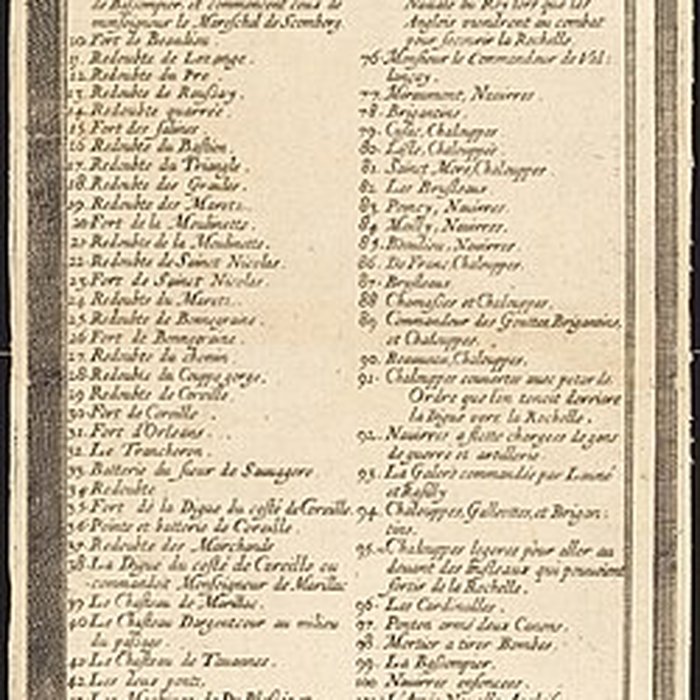 de Bassompier, et commencent ceux de
monseigneur le Mareschal de Scomberg
10. Fort de Beaulieu.
11. Redoubte de Lorange.
12. Redoubte du Pre.
13. Redoubte de
14. Redoubte quarrée.
15. Fort des salines.
16. Redoubte du Bastion.
17. Redoubte du Triangle.
18. Redoubte des
19. Redoubte des Marets.
20. Fort de la Moulinette.
21. Redoubte de la Moulinette.
22. Redoubte de Sainct Nicolas.
23. Fort de Sainct Nicolas.
24. Redoubte du Marets.
25. Redoubte de Bonnegraine.
26. Fort de Bonnegraine.
27. Redoubte du chemin
28. Redoubte du Couppe gorge.
29. Redoubte de Coreille
30. Fort de Coreille.
31. Fort d'Orleans.
32. Le Trancheron.
33. Batterie du sieur de Sauuagere.
34. Redoubte
35. Fort de la Digue du costé de Coreille.
36. Pointe et batterie de Coreille.
37. Redoubte des Marchands
38. La Digue du costé de Coreille ou
commandoit Monseigneur de Marillac
39. Le Chasteau de Marillac.
40. Le Chasteau Dargencour au milieu
du passage.
41. Le Chasteau de Tauannes.
42. Les deux ponts.
Nauale du Roy lors que les
Anglois viendrent au combat
pour secourir la Rochelle.
76. Monsieur le Commandeur de Val:
lançay.
77. Miraumont, Nauires.
78. Brigantins.
79. Chalouppes
80. Chalouppes
81. Sainct Chalouppes
82. Les Brusleaux
83. Poincy, Nauires.
84. Nauires.
85. Beaulieu, Nauires.
86. De Franc, Chalouppes.
87. Brusleaux
88. et Chalouppes.
89. Commandeur des Gouttes, Brigantins,
et Chalouppes.
90. Beauuais, Chalouppes.
91. Chalouppes couuertes auec petards
Ordre que lon tenoit derriere
la Digue vers la Rochelle.
92. Nauires a flotte chargees de gens
de guerre et artillerie.
93. La Galere commandée par
et Rasilly
94. Chalouppes, Galleottes, et Brigan:
tins.
95. Chalouppes legeres pour aller au
deuant des brusleaux qui pouuoient
sortir de la Rochelle.
96. Les Cardinalles.
97. Ponton armé deux Canons.
98. Mortier a tirer Bombes.
99. La Bassompier.
100. Nauires enfoncees.